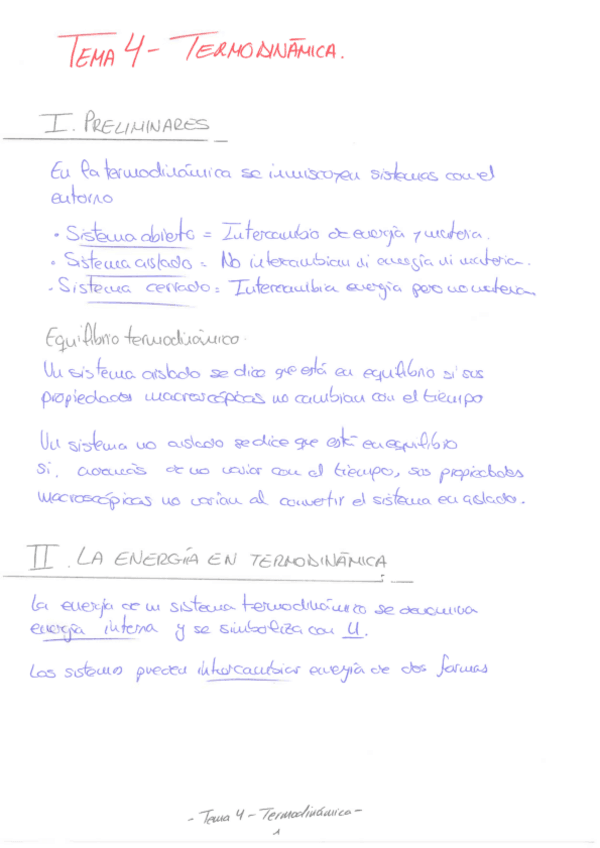 TEMA 4 - TERMODINÁMICA.
I. PRELIMINARES
En la termodinámica se inmiscuyen sistemas con el
entorno
• Sistema abierto = Intercambio de energía y materia.
• Sistema aislado = No intercambian ni energía ni materia.
• Sistema cerrado = Intercambia energía pero no materia
Equilibrio termodinámico.
Un sistema aislado se dice que está en equilibrio si sus
propiedades macroscópicas no cambian con el tiempo
Un sistema no aislado se dice que está en equilibrio
si, además de no variar con el tiempo, sus propiedades
macroscópicas no varían al convertir el sistema en aislado.
II. LA ENERGÍA EN TERMODINÁMICA
La energía de un sistema termodinámico se denomina
energía interna y se simboliza con U.
Los sistemas pueden intercambiar energía de dos formas
- Tema 4 - Termodinámica -
1